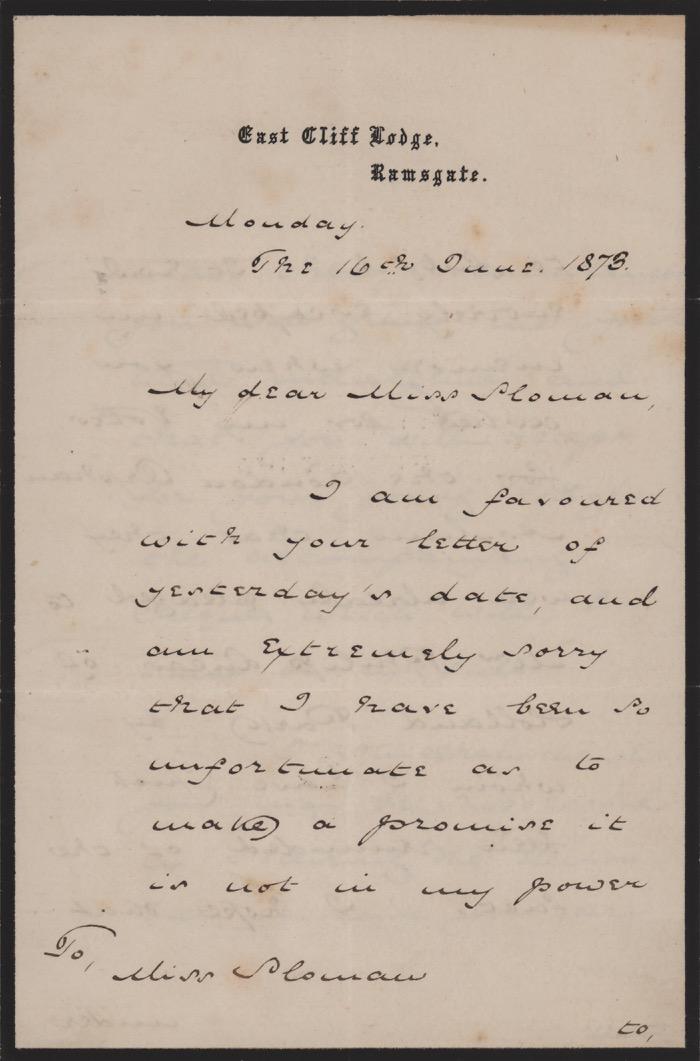 East Cliff Lodge,
Ramsgate.
Monday.
The 16th June. 1873.
My dear Miss Sloman,
I am favoured
with your letter of
yesterday's date, and
am extremely sorry
that I have been so
unfortunate as to
make a promise it
is not in my power
To, Miss Sloman
to,